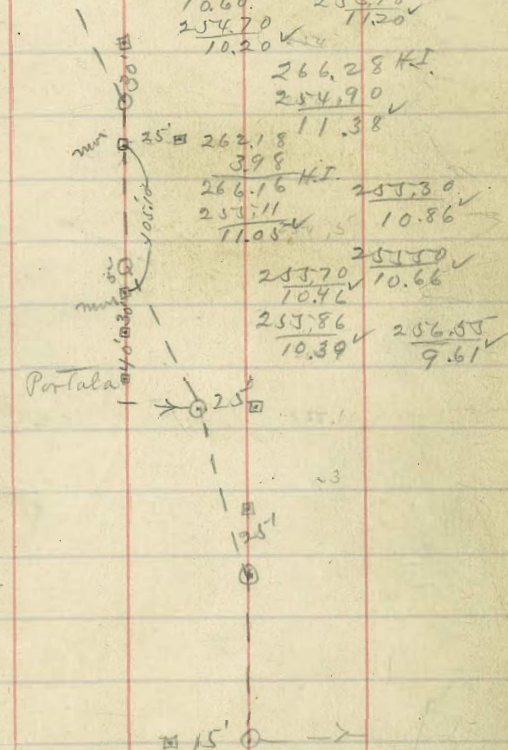 10.60
254.70
10.20 ✓
11.20 ✓
30'
266.28 H.I.
254.90
11.38 ✓
25'
262.18
3.98
266.16 H.I.
255.11
11.05 ✓
255.30
10.86 ✓
405.10
255.50
10.66 ✓
255.70
10.46 ✓
30'
255.86
10.30 ✓
256.55
9.61 ✓
40'
Portala
25'
25'
15'